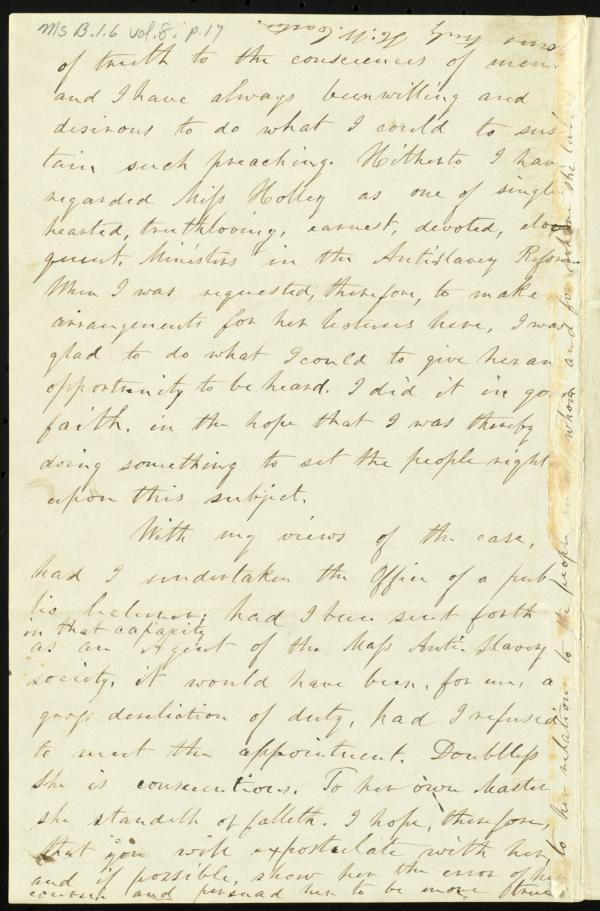 Ms B.1.6 vol.8, p.17
of truth to the consciences of men
and I have always been willing and
disirous to do what I could to sus
tain such preaching. Hitherto I have
regarded Miss Holley as one of single
hearted, truthloving, earnest, devoted, elo
quent, Ministers in the Antislavery Reform
When I was requested, therefore, to make
arrangements for her lectures here, I was
glad to do what I could to give her an
opportunity to be heard. I did it in go
faith, in the hope that I was thereby
doing something to set the people right
upon this subject.
With my views of the case,
had I undertaken the Office of a pub
lic lecturer; had I been sent forth
in that capacity
as an Agent of the Mass Anti-Slavery
society, it would have been, for me, a
gross dereliction of duty, had I refused
to meet the appointment. Doubtless
she is conscientious. To her own Master
she standeth or falleth. I hope, therefore,
that you will expostulate with her,
and if possible, show her the error of her
course and persuad her to be more true
to her relations to the people whom and for whom she